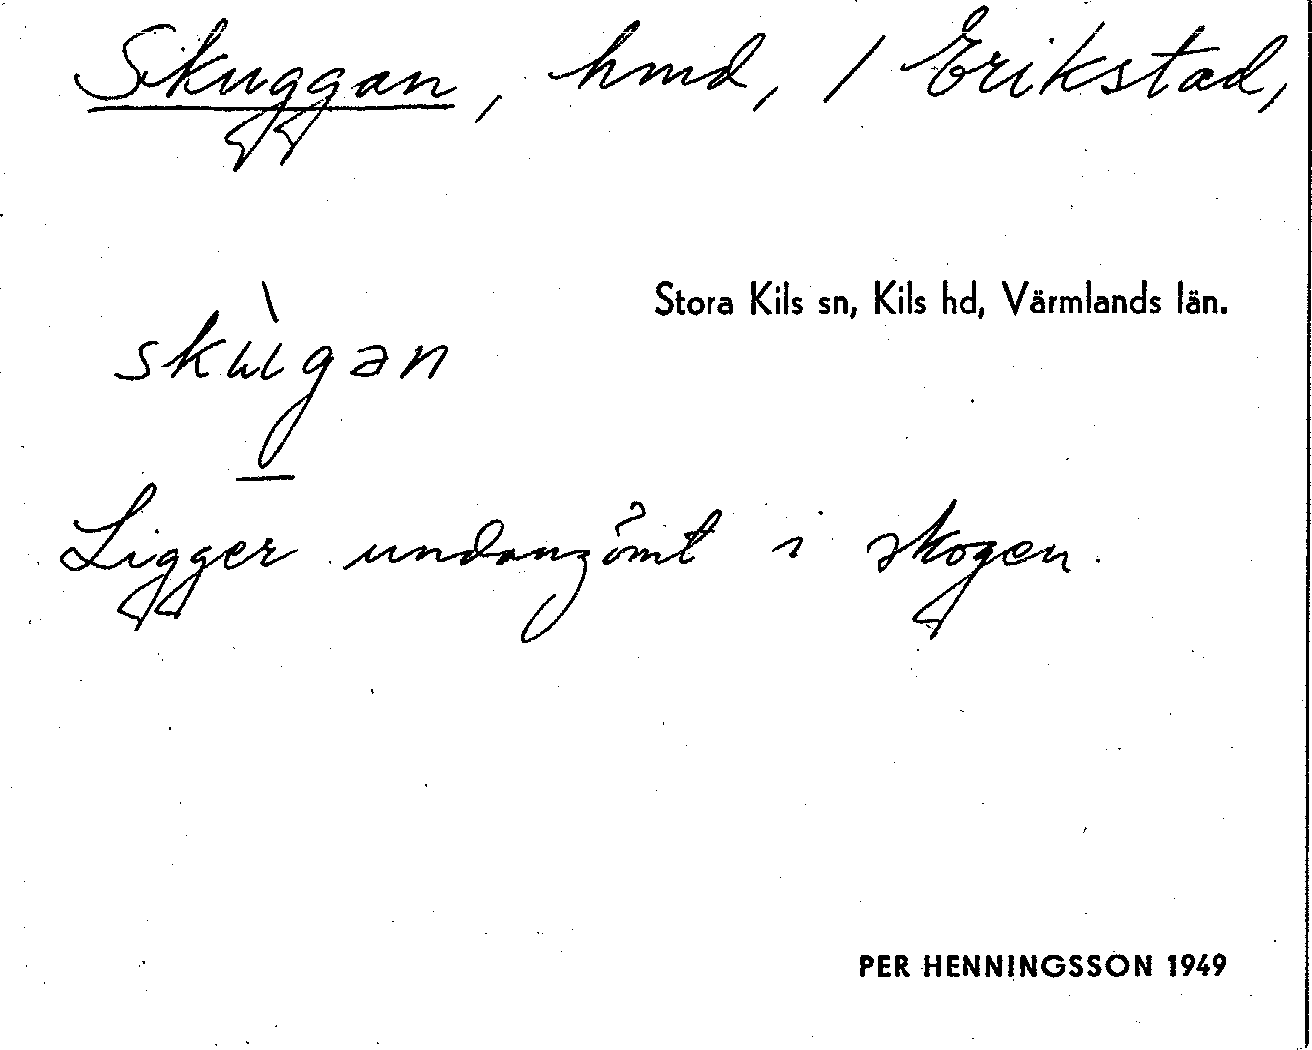 Skuggan, hmd, / Erikstad,
Stora Kils sn, Kils hd, Värmlands län.
skɯ̀gan
Ligger undangömt i skogen.
PER HENNINGSSON 1949